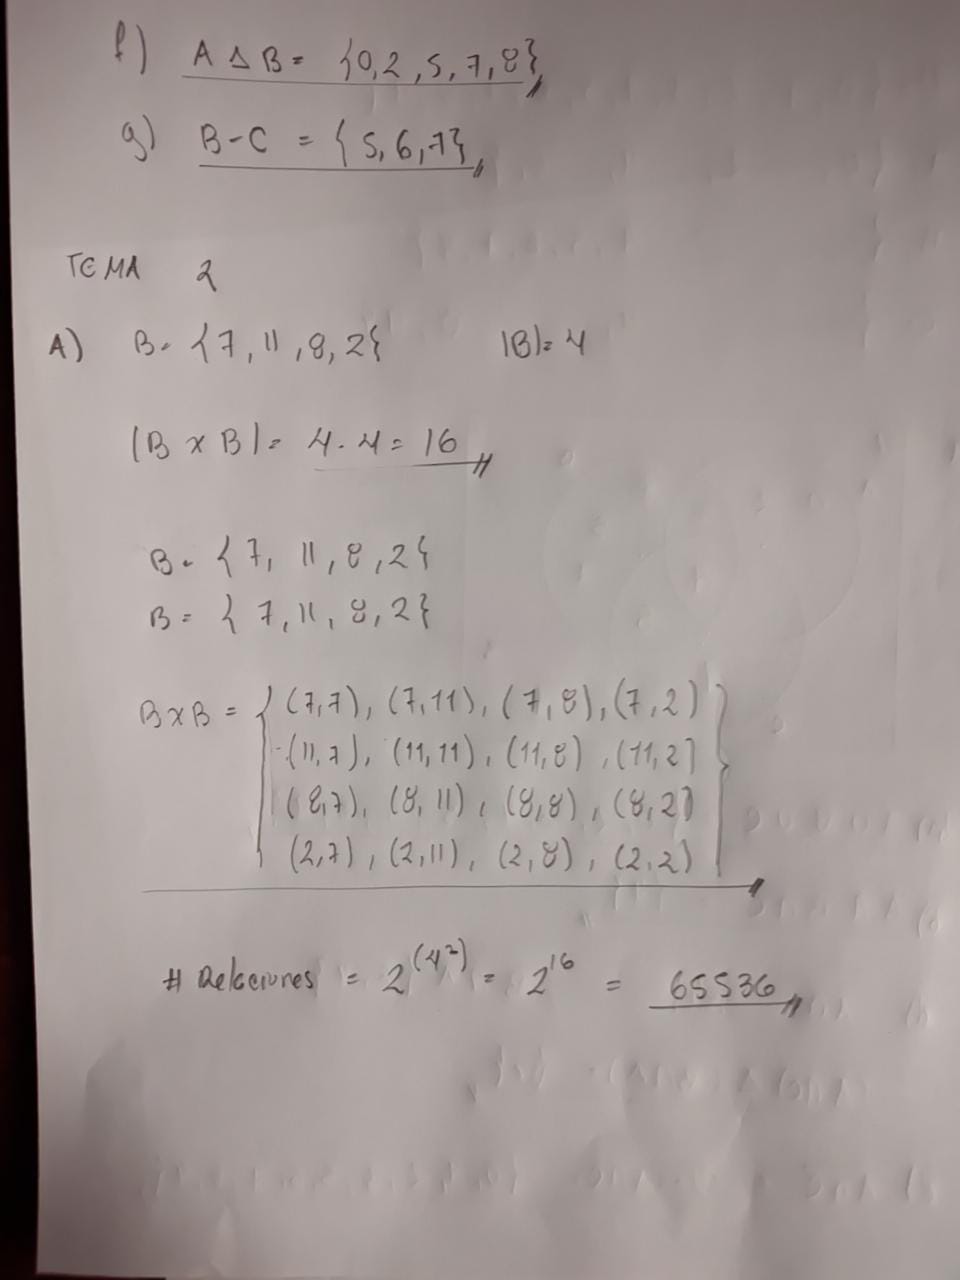 f) A Δ B = {0,2,5,7,8}
g) B-C = {5,6,7}
TEMA 2
A) B = {7,11,8,2} |B|= 4
|B x B| = 4 · 4 = 16
B = {7, 11, 8, 2}
B = {7, 11, 8, 2}
B x B = { (7,7), (7,11), (7,8), (7,2)
(11,7), (11,11), (11,8), (11,2)
(8,7), (8,11), (8,8), (8,2)
(2,7), (2,11), (2,8), (2,2) }
# Relaciones = 2^(4²) = 2^16 = 65536